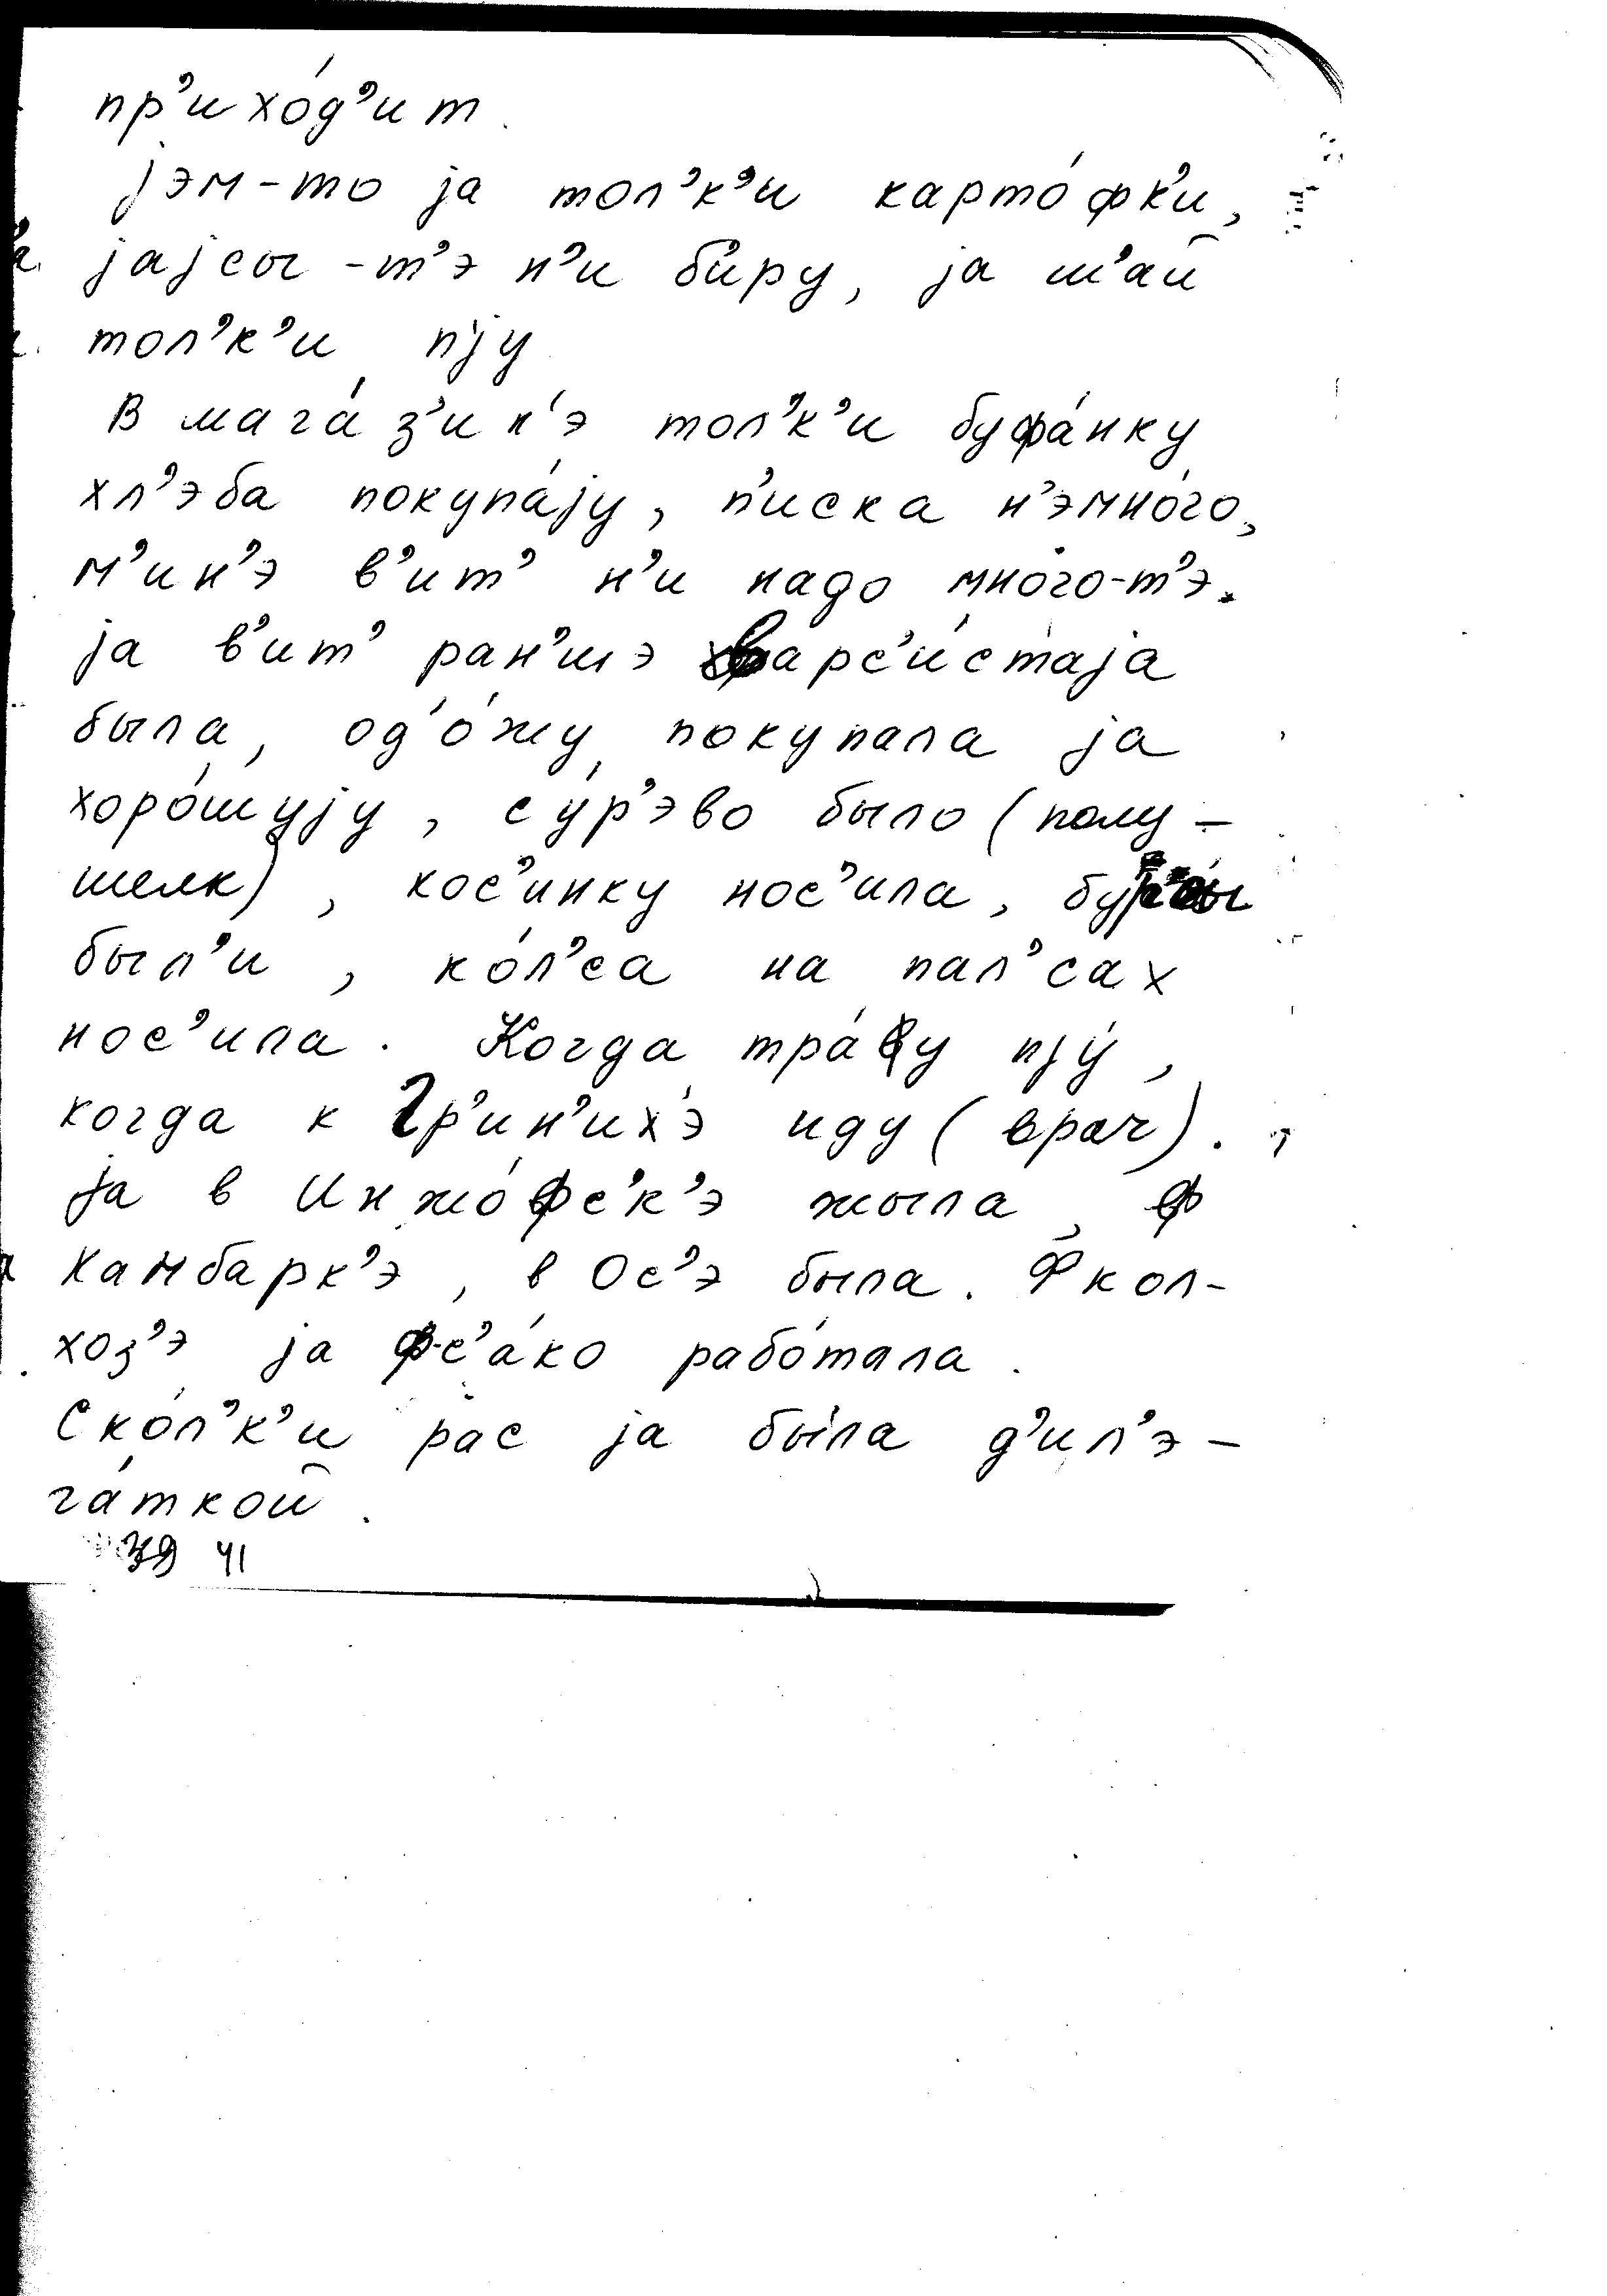 пр’ихо́д’ит.
jэм-то ja тол’к’и карто́фк’и,
jajсы-т’э н’и б’иру, ja ш’ай
тол’к’и пjу
В мага́з’ин’э тол’к’и буфа́нку
хл’эба покупа́jу, п’иска н’эмно́го,
м’ин’э в’ит’ н’и надо мно́го-т’э.
ja в’ит’ ран’шэ варс’и́стаjа
была, од’о́жу покупала ja
хоро́шуjу, су́р’эво было (полу-
шелк), кос’инку нос’ила, бурсы
был’и, ко́л’са на пал’сах
нос’ила. Когда тра́ву пjу́,
когда к Гр’ин’их’э иду (врач).
ja в Инжо́фс’к’э жыла, ф
Камбарк’э, в Ос’э была. Ф кол-
хоз’э ja фс’а́ко рабо́тала.
Ско́л’к’и рас ja бы́ла д’ил’э-
га́ткой.
39 41